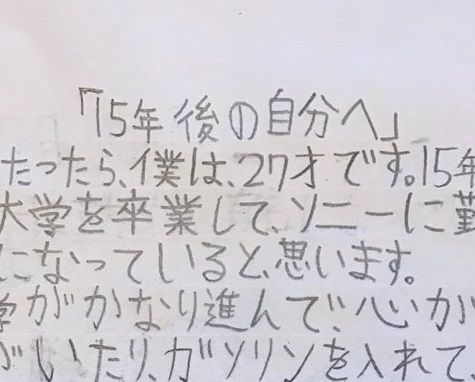 「15年後の自分へ」
たったら、僕は、27才です。15年
大学を卒業して、ソニーに勤
になっていると、思います。
学がかなり進んで、心が
がいたり、ガソリンを入れて、